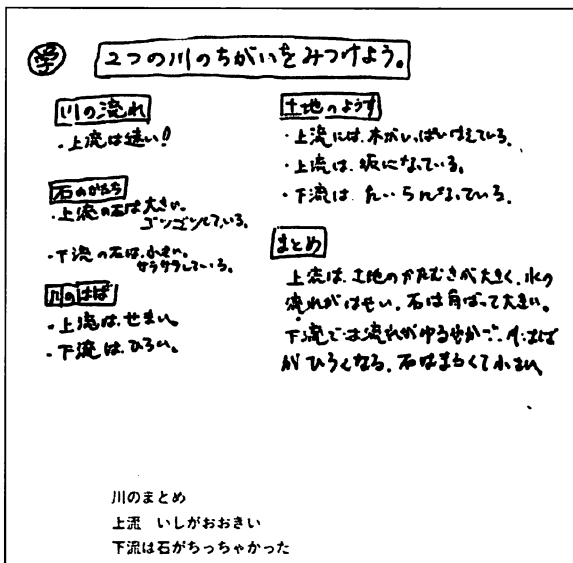 学 2つの川のちがいをみつけよう。
川の流れ
・上流は速い!
石のかたち
・上流の石は大きい。
ゴツゴツしている。
・下流の石は、小さい。
サラサラしている。
川のはば
・上流は、せまい。
・下流は、ひろい。
土地のようす
・上流には、木がいっぱいはえている。
・上流は、坂になっている。
・下流は、たいらになっている。
まとめ
上流は、土地のかたむきが大きく、水の
流れがはやい。石は角ばって大きい。
下流では流れがゆるやかで、川はば
がひろくなる。石はまるくて小さい。
川のまとめ
上流 いしがおおきい
下流は石がちっちゃかった